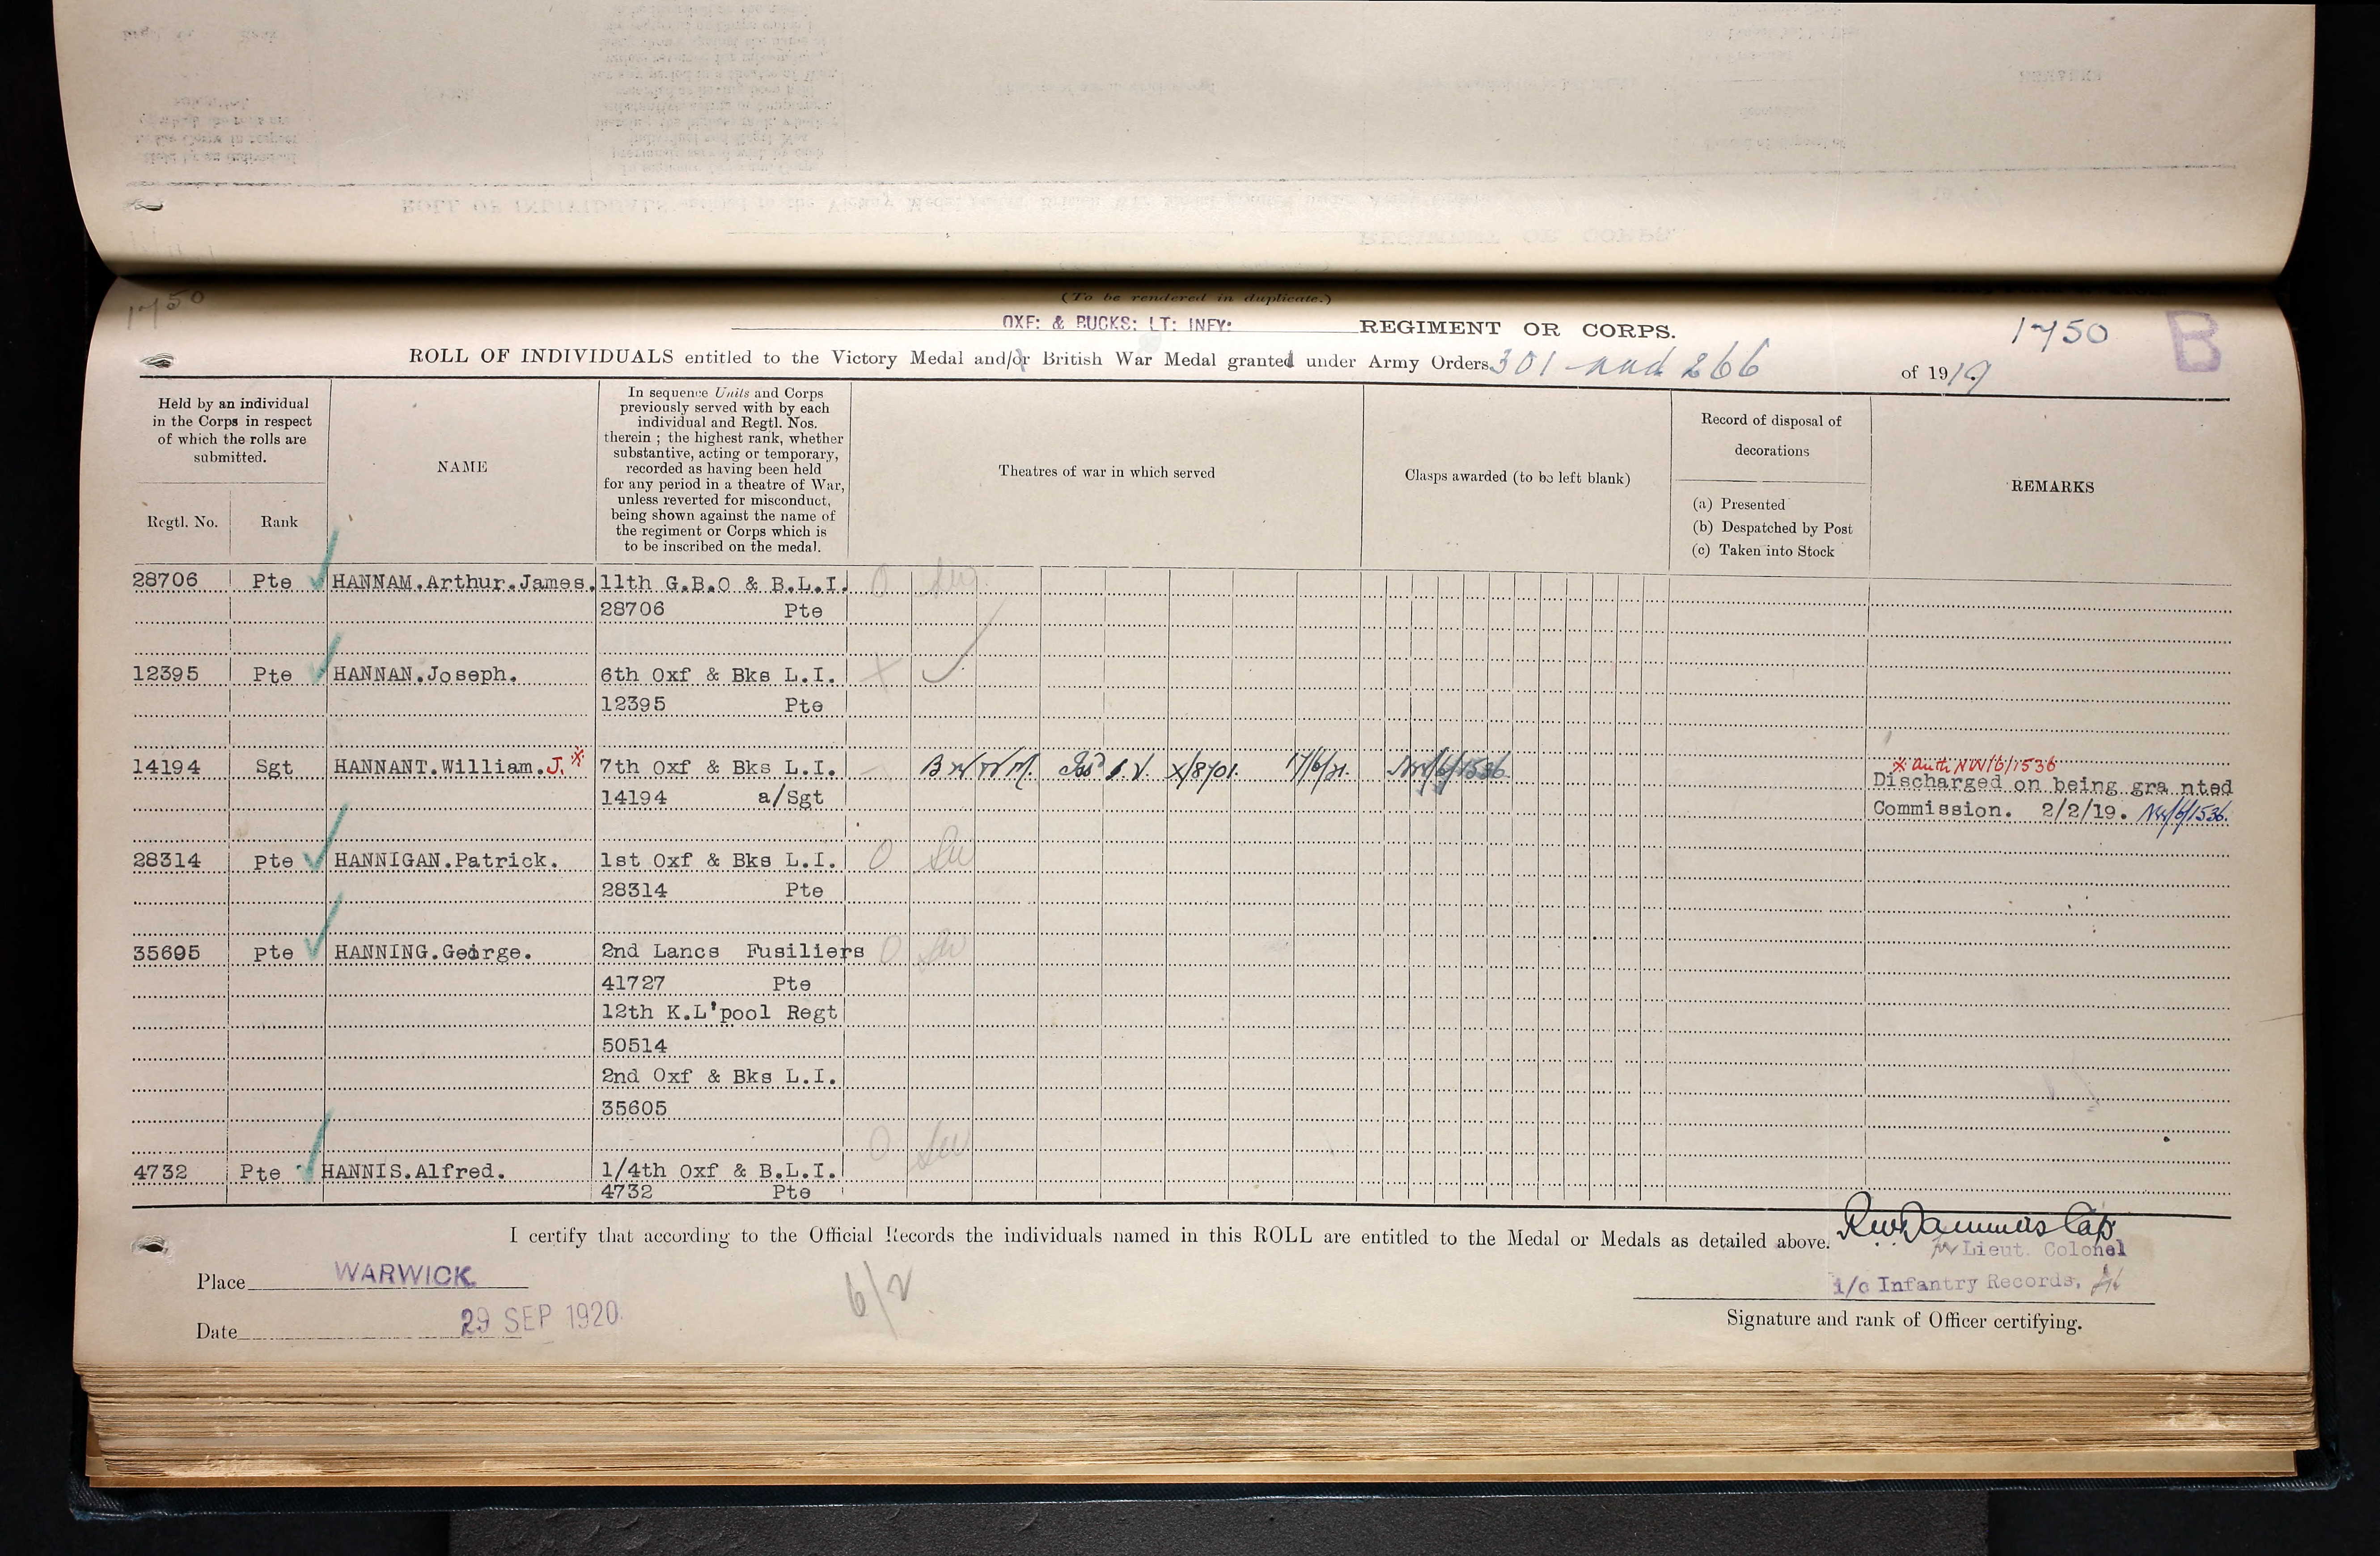 1750
(To be rendered in duplicate.)
OXF: & BUCKS: LT: INFY: REGIMENT OR CORPS. 1750 B
ROLL OF INDIVIDUALS entitled to the Victory Medal and/or British War Medal granted under Army Orders 301 and 266 of 1919.
Held by an individual
in the Corps in respect
of which the rolls are
submitted.
Regtl. No. Rank
NAME
In sequence Units and Corps
previously served with by each
individual and Regtl. Nos.
therein ; the highest rank, whether
substantive, acting or temporary,
recorded as having been held
for any period in a theatre of War,
unless reverted for misconduct,
being shown against the name of
the regiment or Corps which is
to be inscribed on the medal.
Theatres of war in which served
Clasps awarded (to be left blank)
Record of disposal of
decorations
(a) Presented
(b) Despatched by Post
(c) Taken into Stock
REMARKS
28706 Pte HANNAM.Arthur.James. 11th G.B.O & B.L.I. O
28706 Pte
12395 Pte HANNAN.Joseph. 6th Oxf & Bks L.I.
12395 Pte
14194 Sgt HANNANT.William.J.* 7th Oxf & Bks L.I. B W & V M. Issd I.V. X/8701. 17/6/21. NW/6/1536
* Auth NW/6/1536
14194 a/Sgt Discharged on being gra nted
Commission. 2/2/19. NW/6/1536.
28314 Pte HANNIGAN.Patrick. 1st Oxf & Bks L.I. O
28314 Pte
35695 Pte HANNING.George. 2nd Lancs Fusiliers O
41727 Pte
12th K.L'pool Regt
50514
2nd Oxf & Bks L.I.
35605
O
4732 Pte HANNIS.Alfred. 1/4th Oxf & B.L.I.
4732 Pte
I certify that according to the Official Records the individuals named in this ROLL are entitled to the Medal or Medals as detailed above.
for Lieut. Colonel
Place WARWICK. 6/2 i/c Infantry Records,
Date 29 SEP 1920. Signature and rank of Officer certifying.